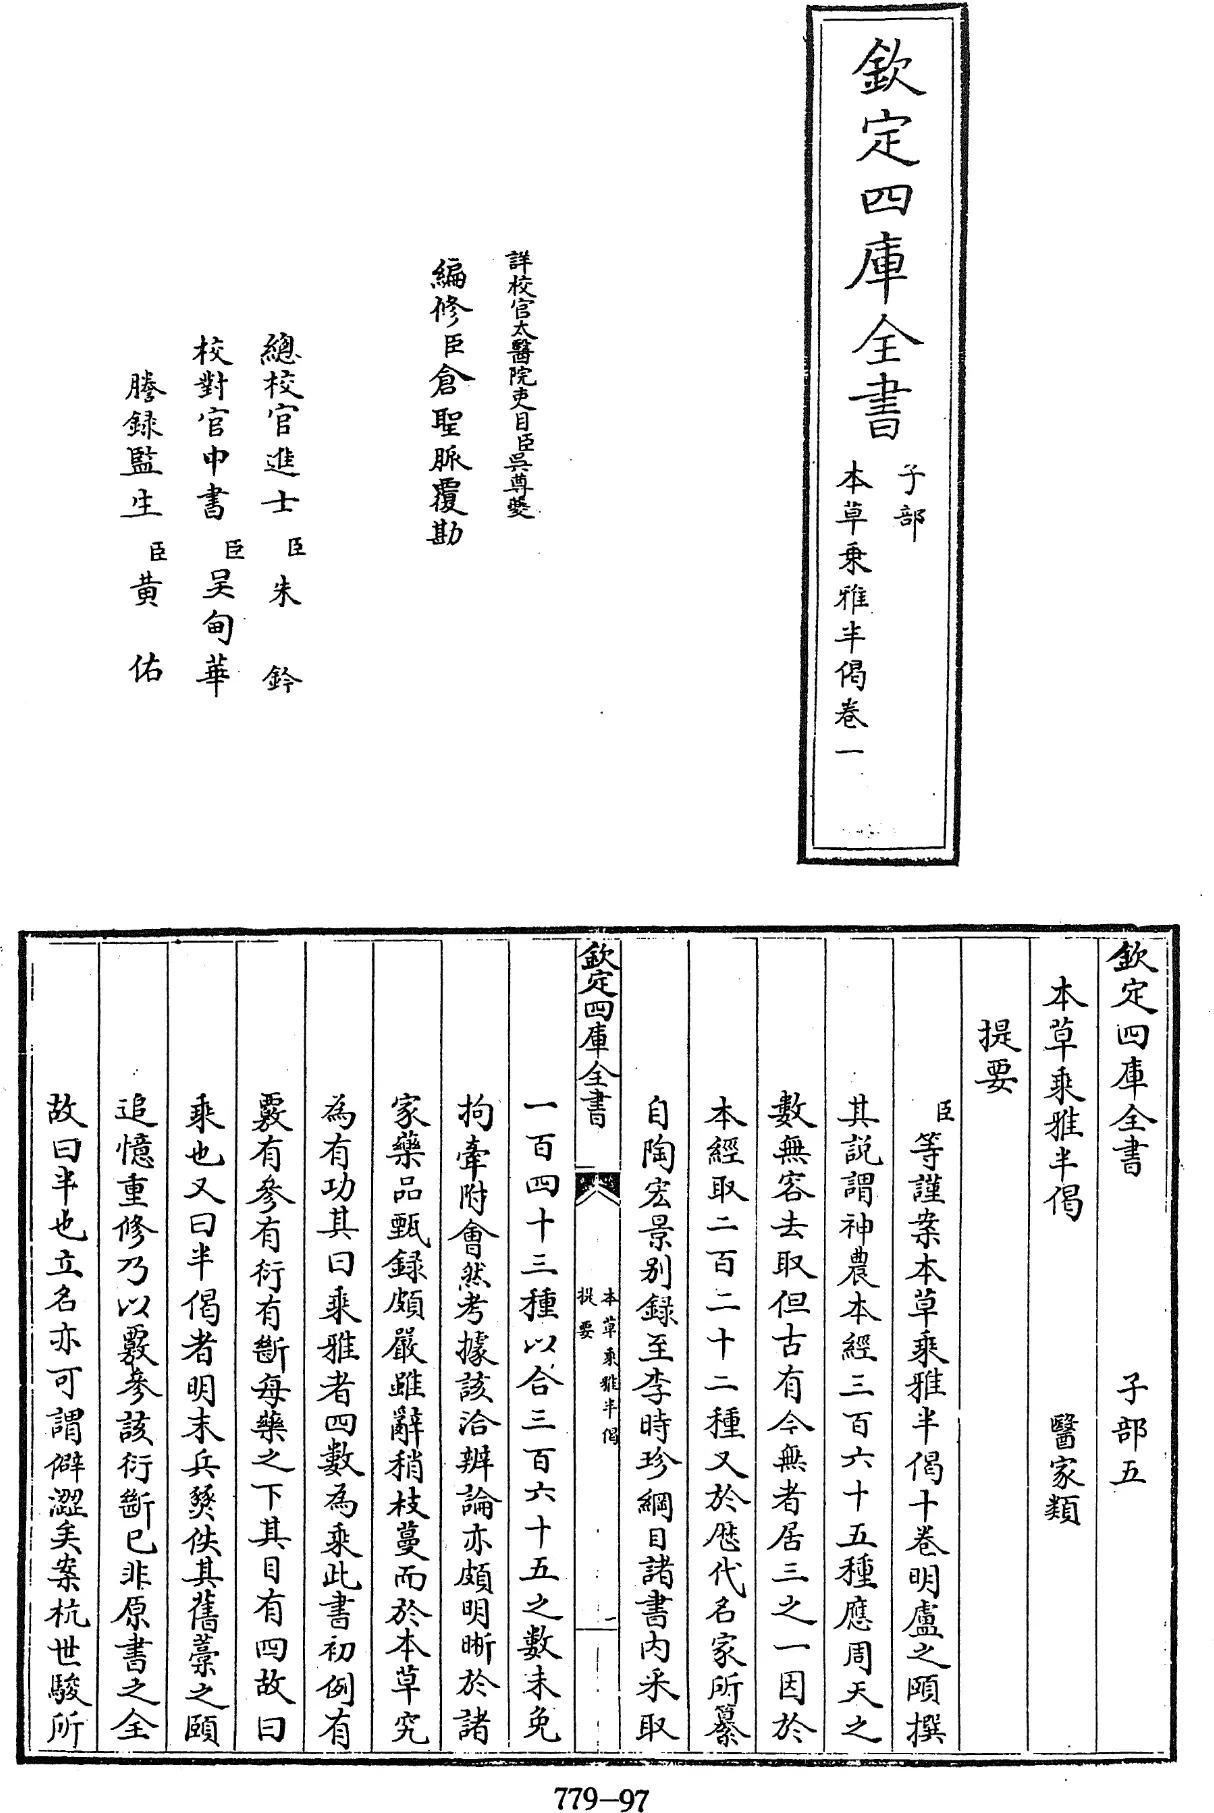 欽定四庫全書
子部
本草乘雅半偈卷一
詳校官太醫院吏目臣吳尊夔
編修臣倉聖脈覆勘
總校官進士臣朱鈐
校對官中書臣吳甸華
謄録監生臣黄佑
欽定四庫全書 子部五
本草乘雅半偈 醫家類
提要
臣等謹案本草乘雅半偈十卷明盧之頤撰
其説謂神農本經三百六十五種應周天之
數無容去取但古有今無者居三之一因於
本經取二百二十二種又於歴代名家所纂
自陶宏景别録至李時珍綱目諸書内采取
欽定四庫全書
本草乘雅半偈
提要
一
一百四十三種以合三百六十五之數未免
拘牽附會然考據該洽辨論亦頗明晰於諸
家藥品甄録頗嚴雖辭稍枝蔓而於本草究
為有功其曰乘雅者四數為乘此書初例有
覈有參有衍有斷每藥之下其目有四故曰
乘也又曰半偈者明末兵燹佚其舊藁之頤
追憶重修乃以覈參該衍斷已非原書之全
故曰半也立名亦可謂僻澀矣案杭世駿所
779-97